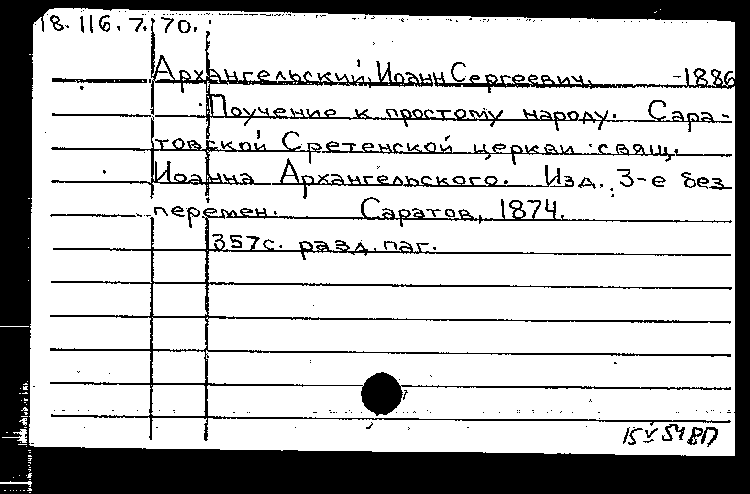 18.116.7.70.
Архангельский, Иоанн Сергеевич, -1886
Поучение к простому народу. Сара-
товской Сретенской церкви свящ.
Иоанна Архангельского. Изд. 3-е без
перемен. Саратов, 1874.
357с. разд. паг.
15 V 51 ВП